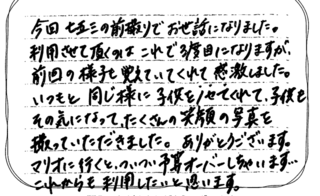 今回 七五三の前撮りでお世話になりました。
利用させて頂くのは これで3度目になりますが、
前回の様子も覚えていてくれて感激しました。
いつもと 同じ様に子供をノセてくれて、子供も
その気になって、たくさんの笑顔の写真を
撮っていただきました。 ありがとうございます。
マリオに行くと、ついつい予算オーバーしちゃいます…
これからも 利用したいと思います。